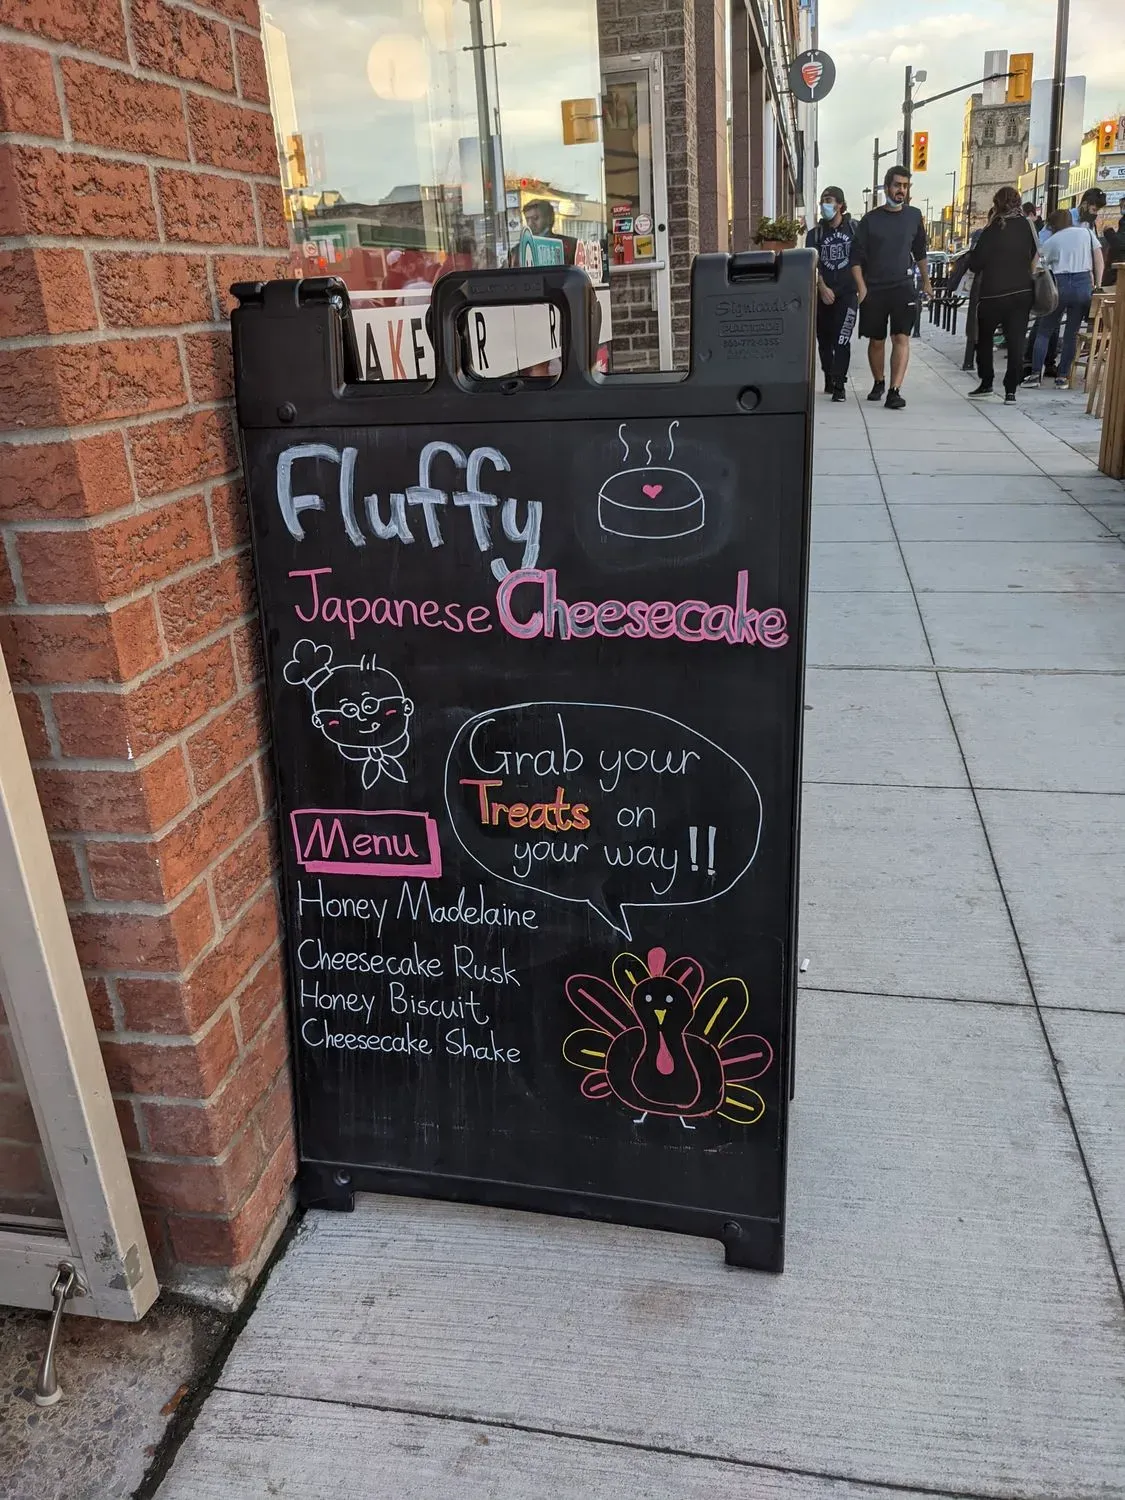 AKE
R
R
Signicade
PLASTICADE
Fluffy
Japanese Cheesecake
Grab your
Treats on
your way!!
Menu
Honey Madelaine
Cheesecake Rusk
Honey Biscuit
Cheesecake Shake